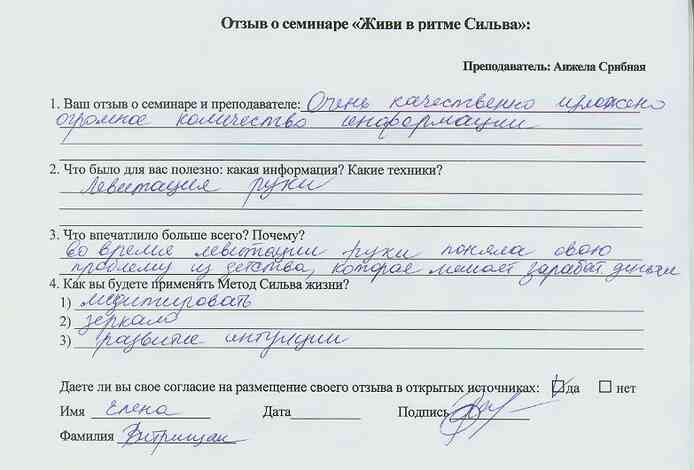 Отзыв о семинаре «Живи в ритме Сильва»:
Преподаватель: Анжела Срибная
1. Ваш отзыв о семинаре и преподавателе: Очень качественно изложено
огромное количество информации
2. Что было для вас полезно: какая информация? Какие техники?
Левитация руки
3. Что впечатлило больше всего? Почему?
Во время левитации руки поняла свою
проблему из детства, которая мешает зарабат. деньги
4. Как вы будете применять Метод Сильва жизни?
1) медитировать
2) зеркало
3) развитие интуиции
Даете ли вы свое согласие на размещение своего отзыва в открытых источниках: да нет
Имя Елена Дата Подпись
Фамилия